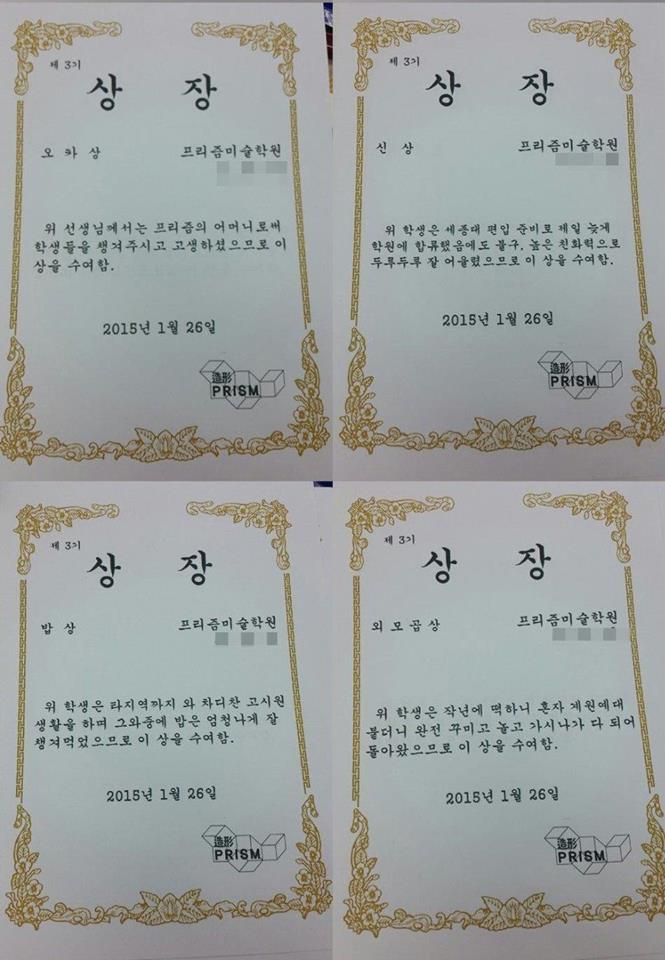 제 3기
상 장
오 카 상 프리즘미술학원
위 선생님께서는 프리즘의 어머니로써
학생들을 챙겨주시고 고생하셨으므로 이
상을 수여함.
2015년 1월 26일
造形
PRISM
제 3기
상 장
신 상 프리즘미술학원
위 학생은 세종대 편입 준비로 제일 늦게
학원에 합류했음에도 불구, 높은 친화력으로
두루두루 잘 어울렸으므로 이 상을 수여함.
2015년 1월 26일
造形
PRISM
제 3기
상 장
밥 상 프리즘미술학원
위 학생은 타지역까지 와 차디찬 고시원
생활을 하며 그와중에 밥은 엄청나게 잘
챙겨먹었으므로 이 상을 수여함.
2015년 1월 26일
造形
PRISM
제 3기
상 장
외 모 곱 상 프리즘미술학원
위 학생은 작년에 떡하니 혼자 계원예대
붙더니 완전 꾸미고 놀고 가시나가 다 되어
돌아왔으므로 이 상을 수여함.
2015년 1월 26일
造形
PRISM